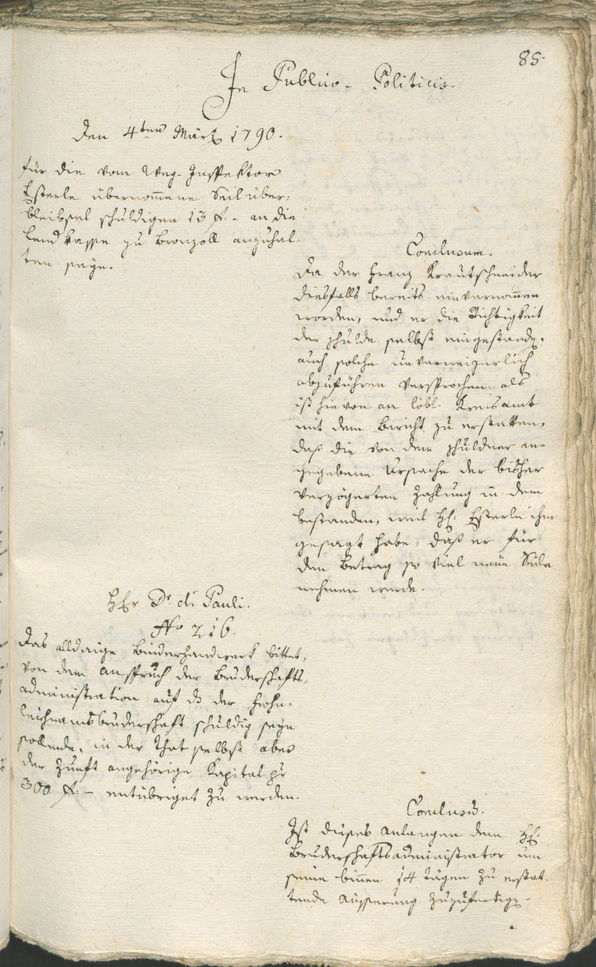 85.
In Publico-Politicis.
den 4ten Märtz 1790.
für die vom Weg-Inspektore
Esterle übernommene Seilüber-
bleibsel schuldigen 13 f.- an die
Lendkasse zu Bronzoll anzuhal-
ten seye.
Conclusum.
Da der Franz Krautschneider
diesfalls bereits einvernommen
worden, und er die Richtigkeit
der Schulde selbst eingestanden,
auch solche unverweigerlich
abzuführen versprochen als
ist hievon an löbl. Kreisamt
mit dem Bericht zu erstatten,
daß die von dem Schuldner an-
gegebene Ursache der bisher
verzögerten Zahlung in dem
bestanden, weil H: Esterle ihm
gesagt habe, daß er für
den Betrag so viel neue Seile
nehmen werde.
Herr Dr. di Pauli.
No 216.
Das alldaige Binderhandwerk bittet,
von dem Anspruch der Bruderschafts
administration auf ds der Frohn-
leichnamsbruderschaft schuldig seyn
sollende, in der That selbst aber
der Zunft angehörige Kapital pr
300 f.- entübriget zu werden.
Conclusum.
Ist dieses Anlangen dem H:
Bruderschaftsadministrator um
seine binnen 14 Tägen zu erstat-
tende Äusserung zuzufertigen.